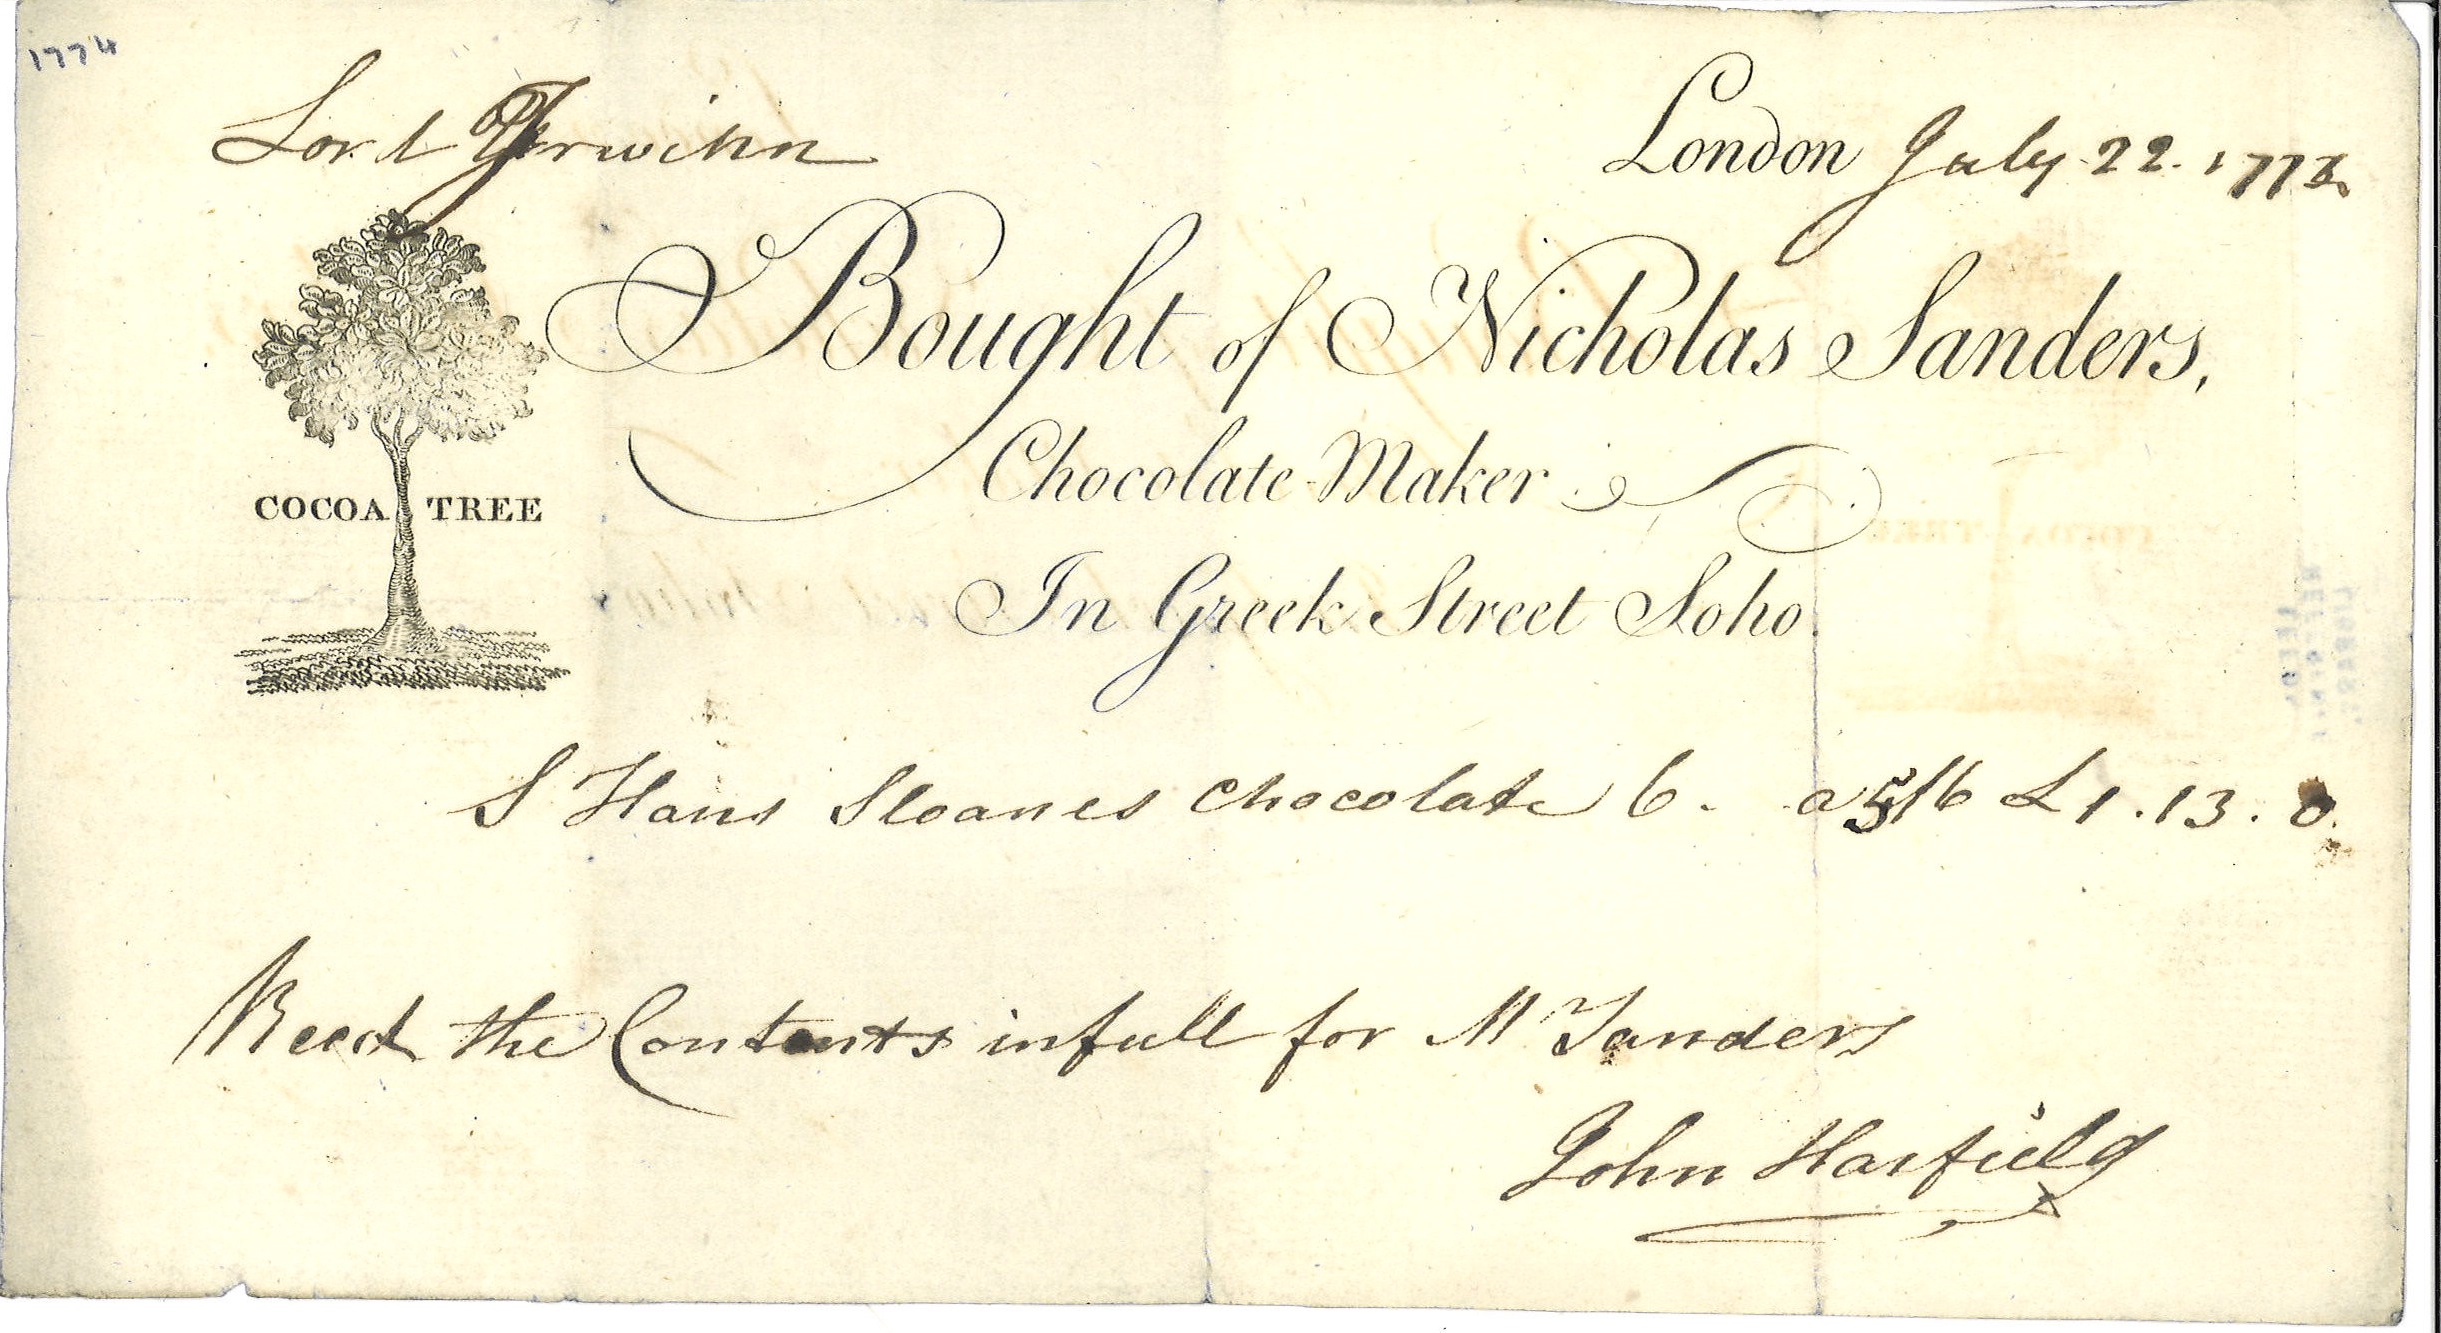 1774
Lord Irwinn
London July 22. 177
Bought of Nicholas Sanders,
Chocolate Maker
In Greek Street Soho.
COCOA TREE
S Hans Sloanes Chocolate 6. a 5/6 £1.13.0.
Recd the Contents in full for M Sanders
John Harfield